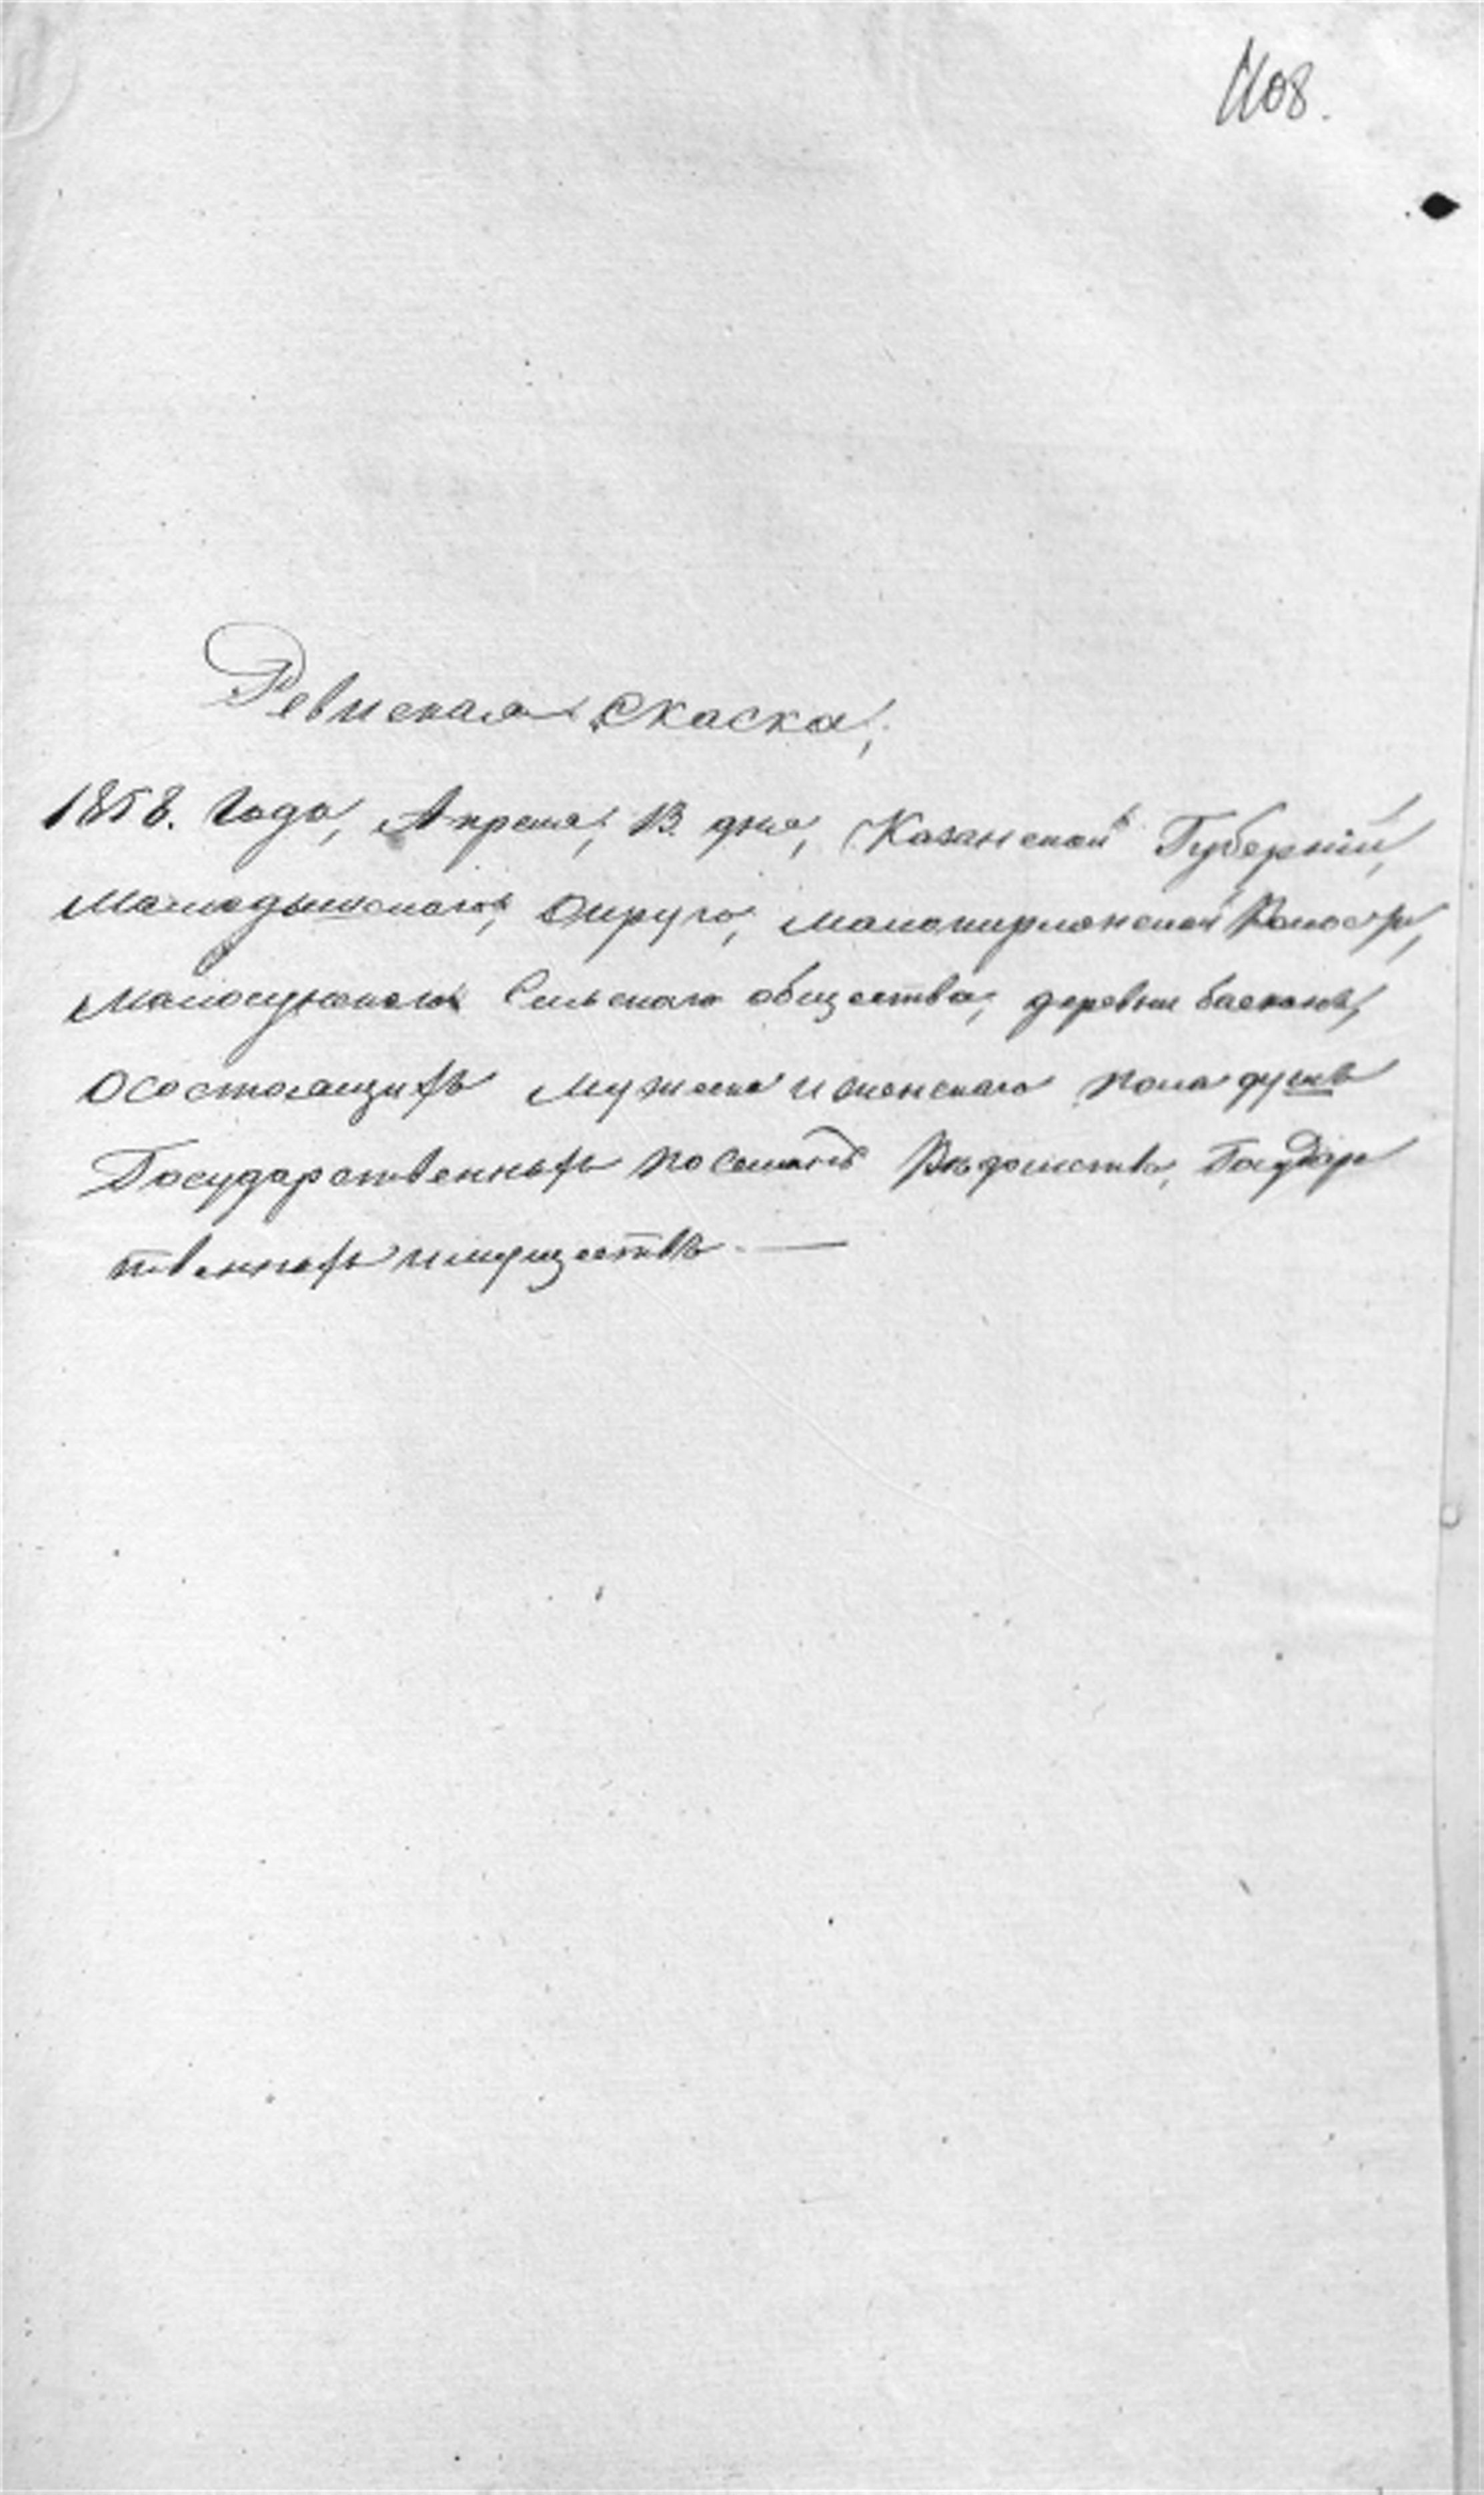 1108.
Ревиская скаска,
1858. Года, Апреля, 13. дня, Казанской Губернiи,
Мамадышскаго, Округа, малокирменской Волости,
Сельскаго общества, деревни
О состоящихъ мужеска и женскаго пола душъ
Государственныхъ поселянъ Ведомства, Государ
твенныхъ имуществъ. —